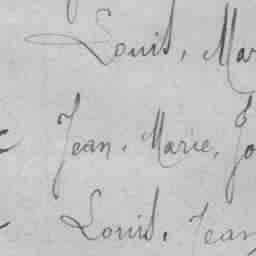 Louis, Mar
Jean, Marie, Jo
Louis, Jean